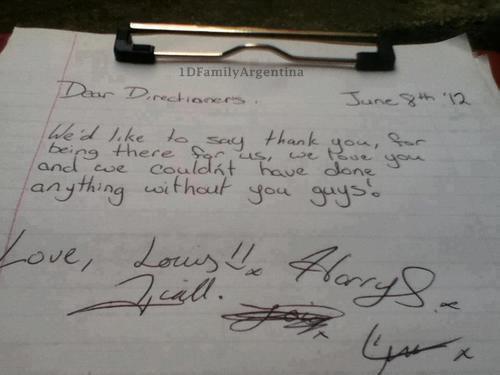 1DFamilyArgentina
Dear Directioners. June 8th '12
We'd like to say thank you, for
being there for us, we love you
and we couldn't have done
anything without you guys!
Love, Louis!! x Harry S. x
Niall.
x
x